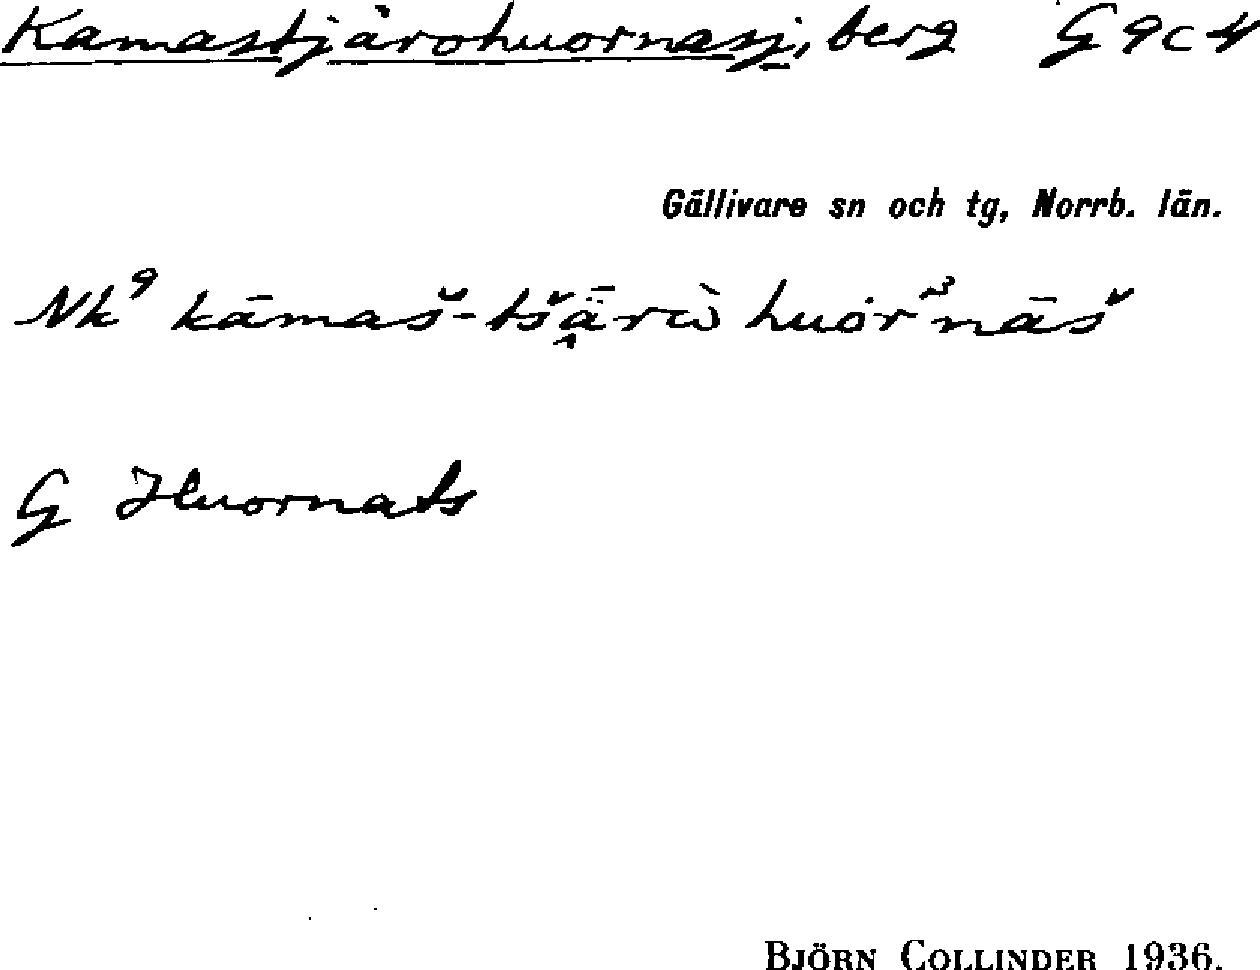 Kamastjårohuornasj, berg G 9c4
Gällivare sn och tg, Norrb. län.
Nk⁹ kāmaš-tšǟrὼ huȯrnāš
G Huornats
BJÖRN COLLINDER 1936.